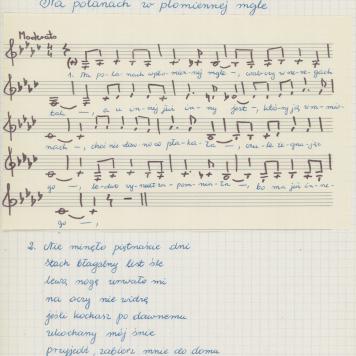 Na polanach w płomiennej mgle
Moderato
1. Na po-la-nach w pło-mien-nej mgle -,
tak -, a u in-nej już in-ny jest -, któ-ry ją
nach -, choć nie daw-no co pła-ka-ła -, czu-le że-gna-jąc
go -, le-dwo z po-mnia-ła -, bo ma już in-ne-
go -,
2. Nie minęło piętnaście dni
Stach błagalny list śle
lewą nogę urwało mi
na oczy nie widzę
jeśli kochasz po dawnemu
ukochany mój śnie
przyjedź, zabierz mnie do domu